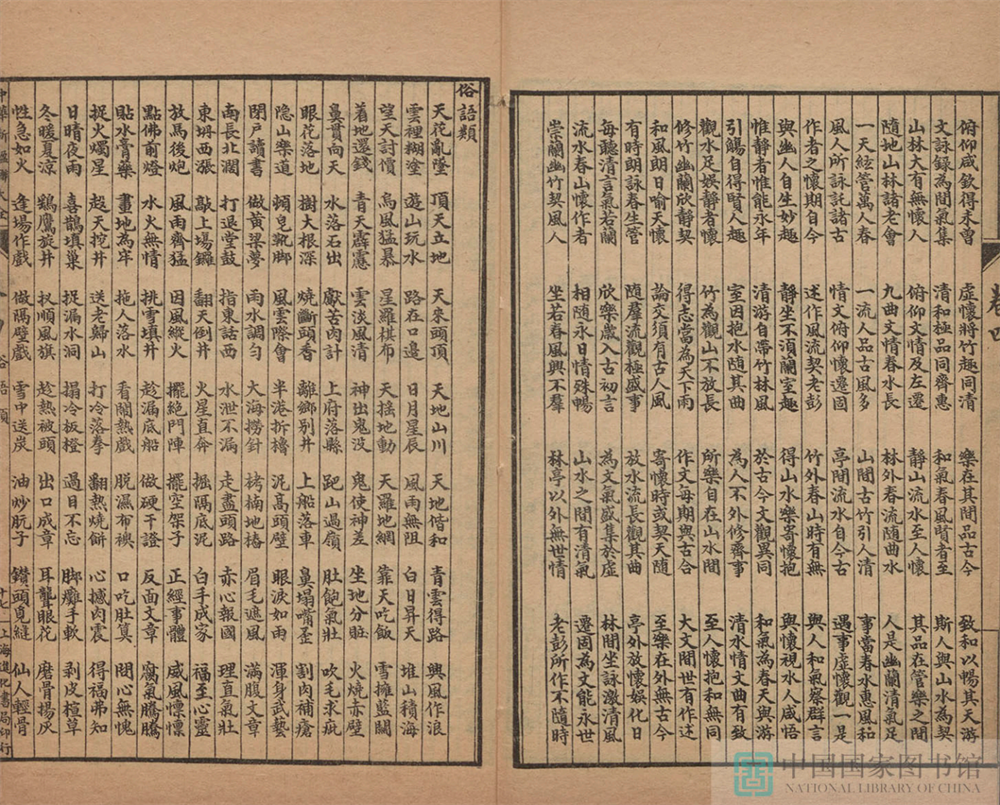 卷四
俯仰咸欽得未曾 虛懷將竹趣同清 樂在其間品古今 致和以暢其天游
文詠錄為閒氣集 清和極品同齊惠 和氣春風賢者至 斯人與山水為契
山林大有無懷人 俯仰文情及左遷 靜山流水至人懷 其品在管樂之間
隨地山林諸老會 九曲文情春水長 林外春風隨曲水 人是幽蘭清氣足
一天絃管萬人春 一流人品古風多 山間古竹引人清 事當春水惠風和
風人所詠託諸古 情文俯仰懷遷固 亭間流水自今古 遇事虛懷觀一是
作者之懷期自今 述作風流契老彭 竹外春山時有無 與人和氣察群言
與幽人自生妙趣 靜坐不須蘭室趣 得山水樂寄懷抱 與懷視水人咸悟
惟靜者惟能永年 清游自帶竹林風 於古今文觀異同 和氣為春天與游
引觴自得賢人趣 室因抱水隨其曲 為人不外修齊事 清水情文曲有致
觀水足娛靜者懷 竹為觀山不放長 所樂自在山水間 至人懷抱和無同
修竹幽蘭欣靜契 得志當為天下雨 作文每期與古合 大文間世有作述
和風朗日喻天懷 論交須有古人風 寄懷時或契天隨 至樂在外無古今
有時朗詠春生管 隨羣流觀極盛事 放水流長觀其曲 亭外放懷娛化日
每聽清言氣若蘭 欣樂歲入古初言 為文氣盛集於虛 林間坐詠激清風
流水春山懷作者 相隨永日情殊暢 山水之間有清氣 遷固為文能永世
崇蘭幽竹契風人 坐若春風興不羣 林亭以外無世情 老彭所作不隨時
俗語類
天花亂墜 頂天立地 天來頭頂 天地山川 天地偕和 青雲得路 興風作浪
雲裡糊塗 遊山玩水 路在口邊 日月星辰 風雨無阻 白日昇天 堆山積海
望天討價 烏風猛暴 星羅棋布 天搖地動 天羅地網 靠天吃飯 雪擁藍關
着地還錢 青天霹靂 雲淡風清 神出鬼沒 鬼使神差 坐地分贓 火燒赤壁
鼻貫向天 水落石出 獻苦肉計 上府落縣 跑山過嶺 肚飽氣壯 吹毛求疵
眼花落地 樹大根深 燒斷頭香 離鄉別井 上船落車 鼻塌嘴歪 割肉補瘡
隱山樂道 頰皂靴腳 風雲際會 半港折櫓 泥高頭壁 眼淚如雨 渾身武藝
閉户讀書 做黃粱夢 雨水調勻 大海撈針 拷楠地樁 眉毛遮風 滿腹文章
南長北闊 打退堂鼓 指東話西 水泄不漏 走盡頭路 赤心報國 理直氣壯
東坍西漲 敲上場鑼 翻天倒井 火星直奔 掘隔底泥 白手成家 福至心靈
放馬後炮 風雨齊猛 因風縱火 擺絕門陣 擺空架子 正經事體 威風懍懍
點佛前燈 水火無情 挑雪填井 趁漏底船 做硬干證 反面文章 腐氣騰騰
貼水膏藥 畫地為牢 拖人落水 看鬧熱戲 脫濕布襖 口吃肚莫 問心無愧
捉火燭星 趕天挖井 送老歸山 打冷落拳 翻熱燒餅 心撼肉震 得福弗知
日晴夜雨 喜鵲填巢 捉漏水洞 搨冷板櫈 過目不忘 脚癱手軟 剥皮楦草
冬暖夏涼 鷂鷹旋井 扠順風旗 趁熱被頭 出口成章 耳聾眼花 磨骨揚灰
性急如火 逢場作戲 做隔壁戲 雪中送炭 油炒朊子 鑽頭覓縫 仙人輕骨
俗語類
十七 上海進化書局印行
中国国家图书馆
NATIONAL LIBRARY OF CHINA